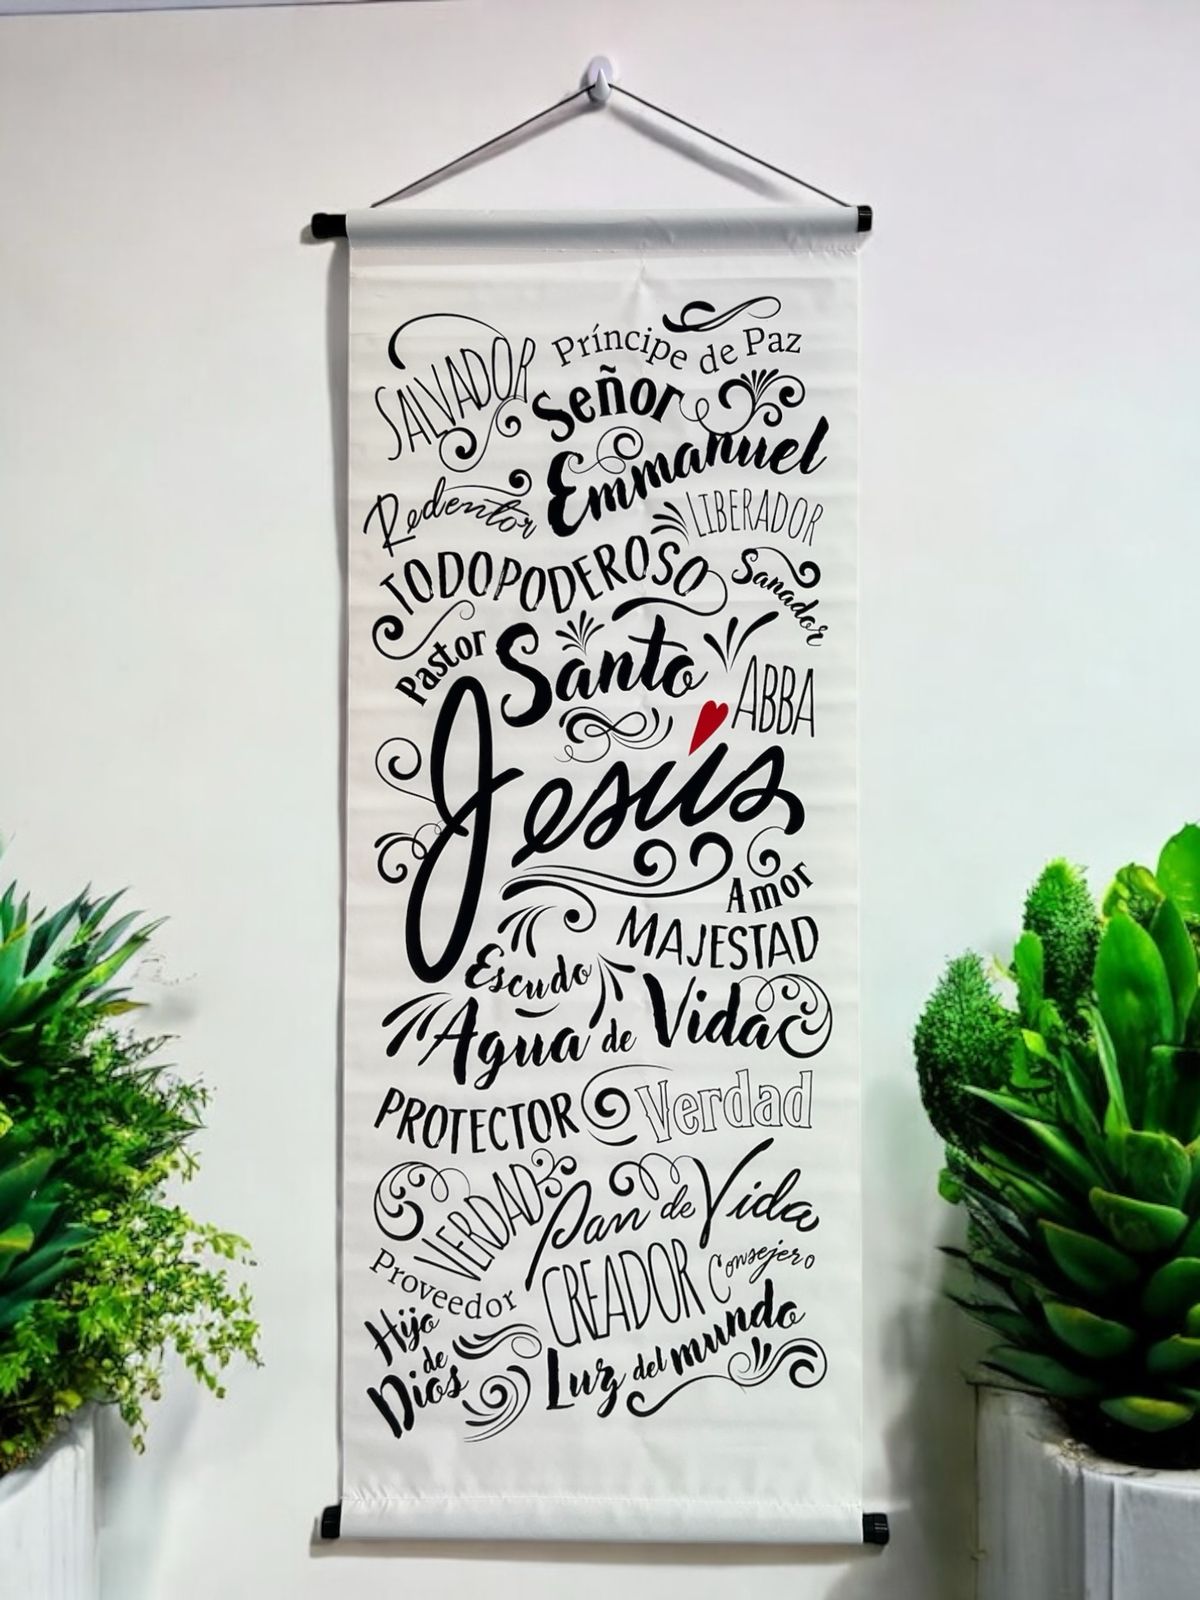 SALVADOR
Príncipe de Paz
Señor
Emmanuel
Redentor
LIBERADOR
TODOPODEROSO
Sanador
Pastor
Santo
ABBA
Jesús
Amor
MAJESTAD
Escudo
Agua de Vida
PROTECTOR
Verdad
VERDAD
Pan de Vida
Proveedor
CREADOR
Consejero
Hijo
de
Dios
Luz del mundo